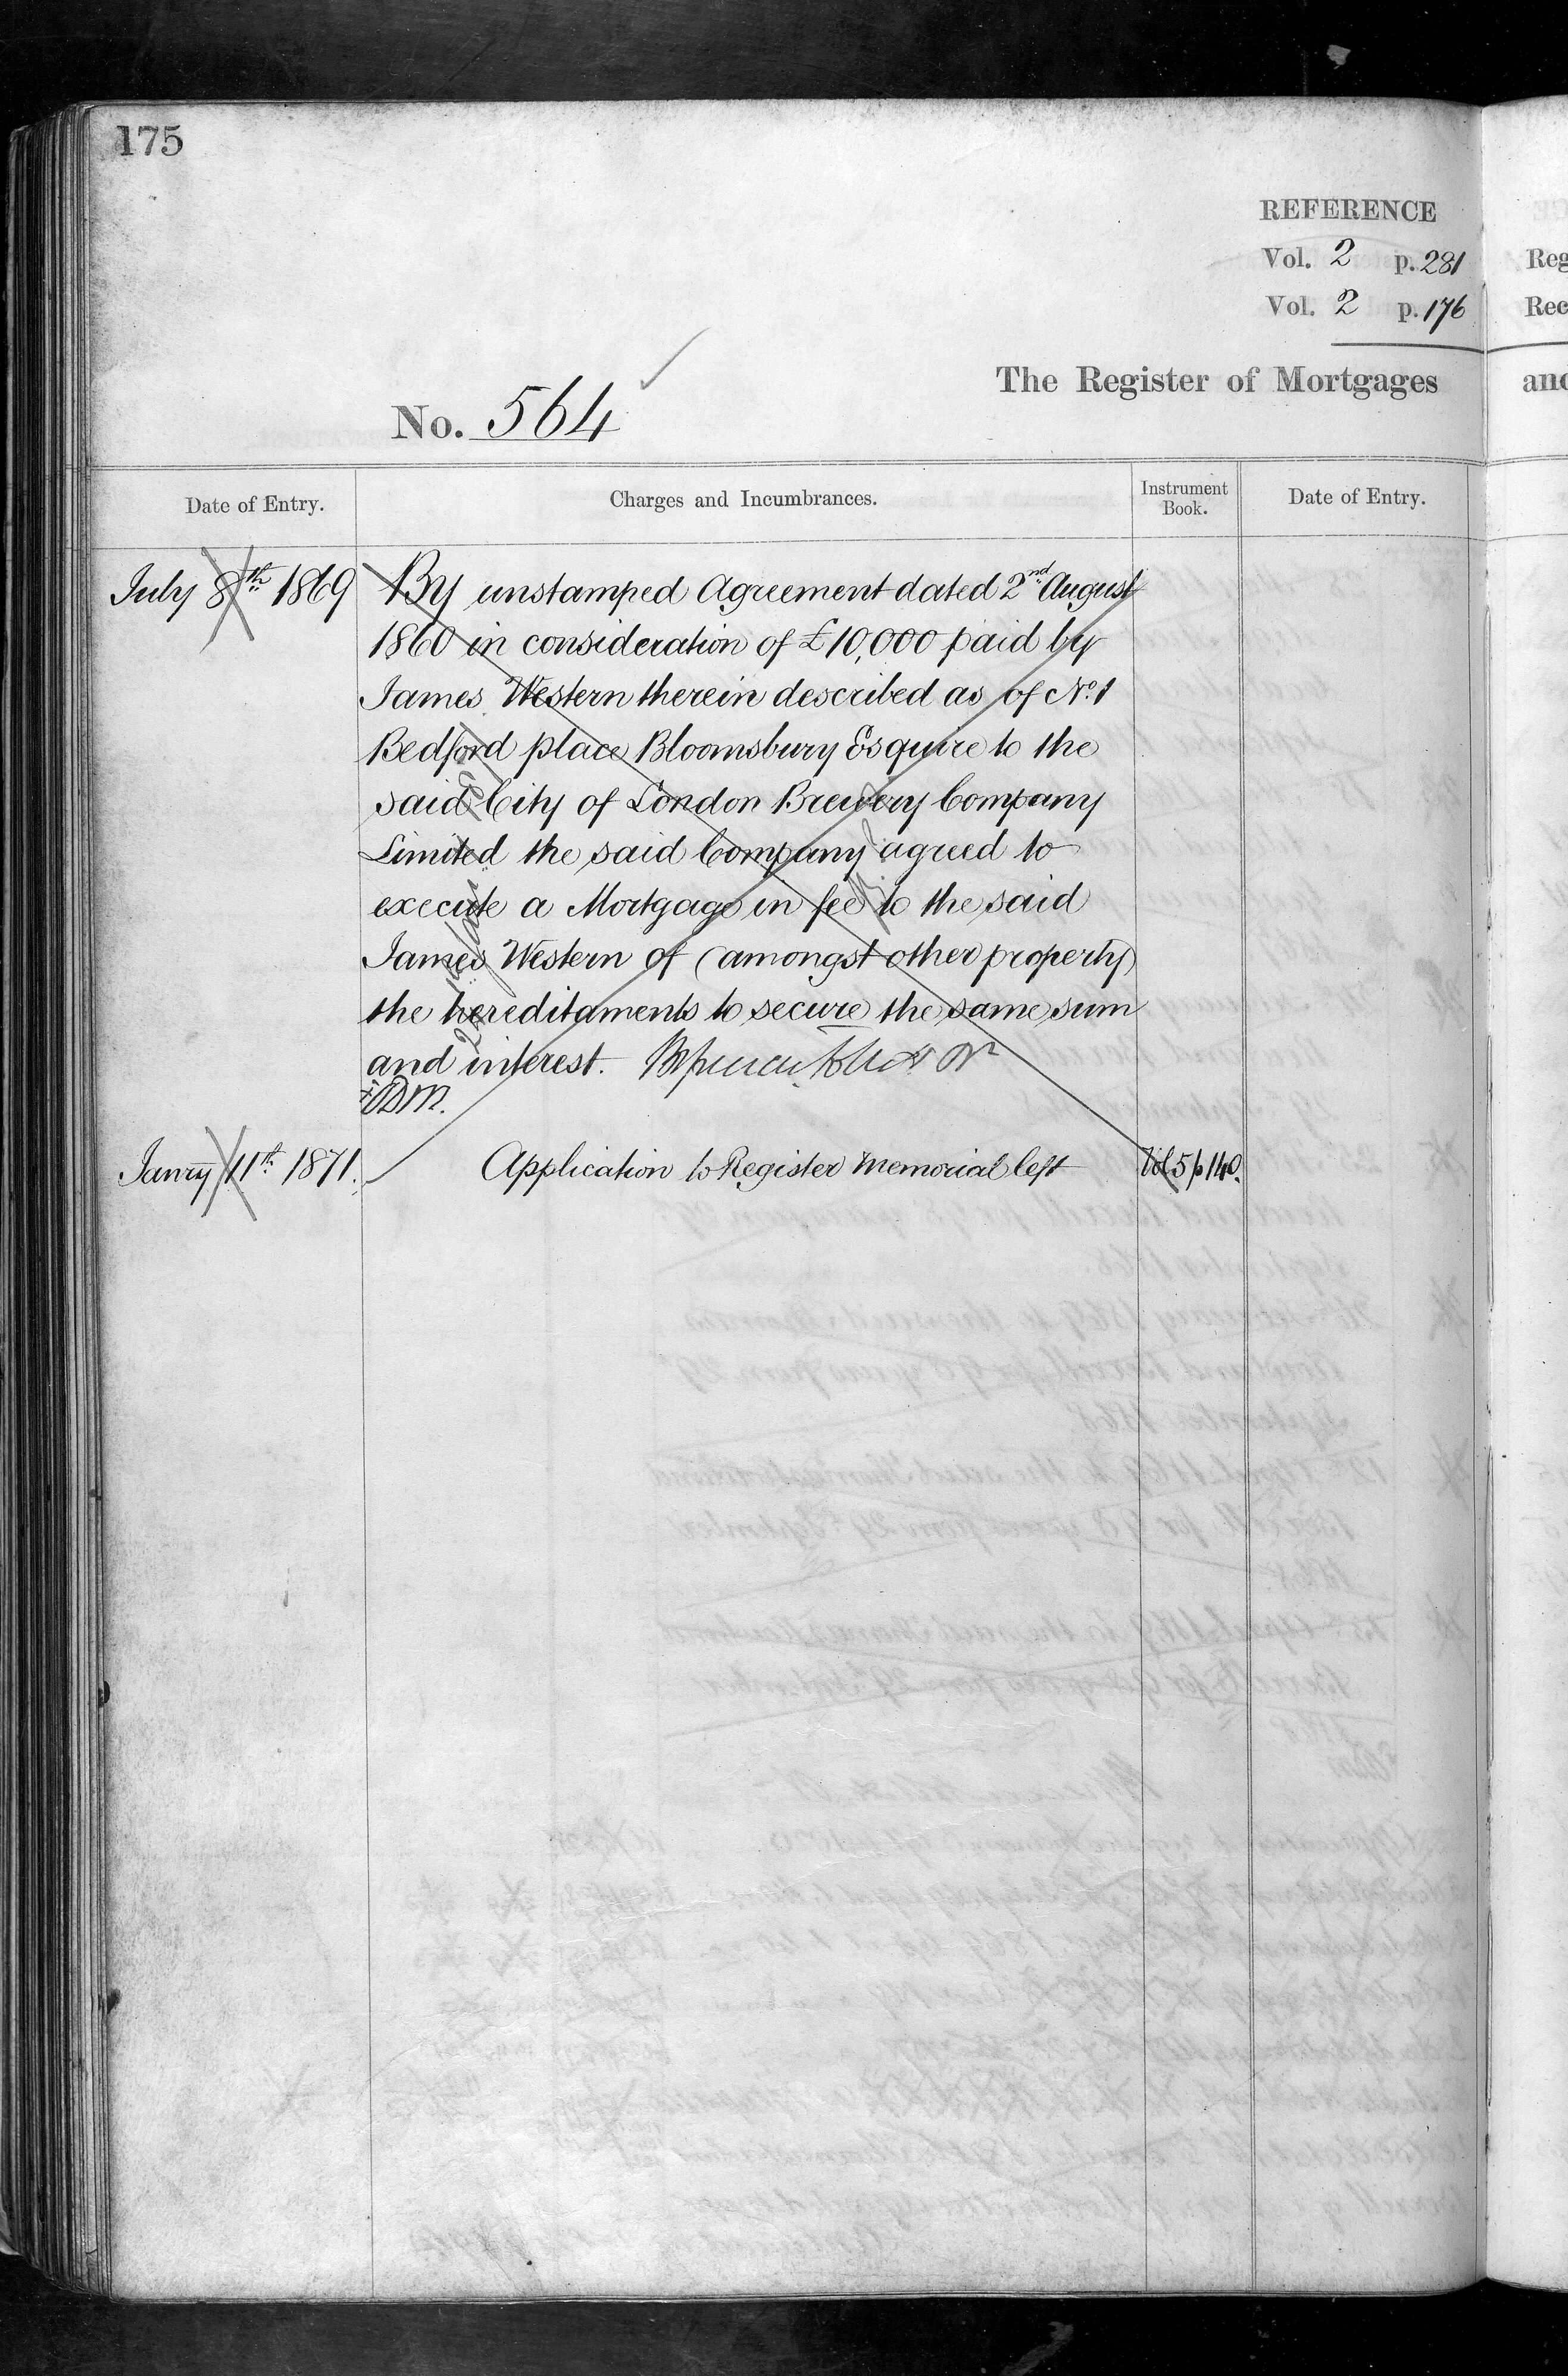 175
REFERENCE
Vol. 2 p. 281
Vol. 2 p. 176
The Register of Mortgages
No. 564
Date of Entry. Charges and Incumbrances. Instrument Book. Date of Entry.
July 8th 1869 By unstamped Agreement dated 2nd August
1860 in consideration of £10,000 paid by
James Western therein described as of No. 1
Bedford place Bloomsbury Esquire to the
said City of London Brewery Company
Limited the said Company agreed to
execute a Mortgage in fee to the said
James Western of (amongst other property)
the hereditaments to secure the same sum
and interest.
Janry 11th 1871. Application to Register Memorial left Vol 5 p 140.
Reg
Rec
and